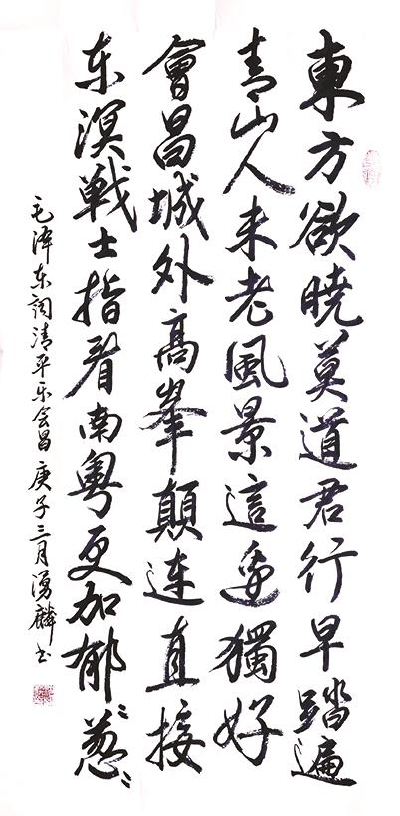 東方欲曉莫道君行早踏遍
青山人未老風景這邊獨好
會昌城外高峯顛連直接
东溟戰士指看南粤更加郁〻葱〻
毛泽东词清平乐会昌庚子三月湧麟书